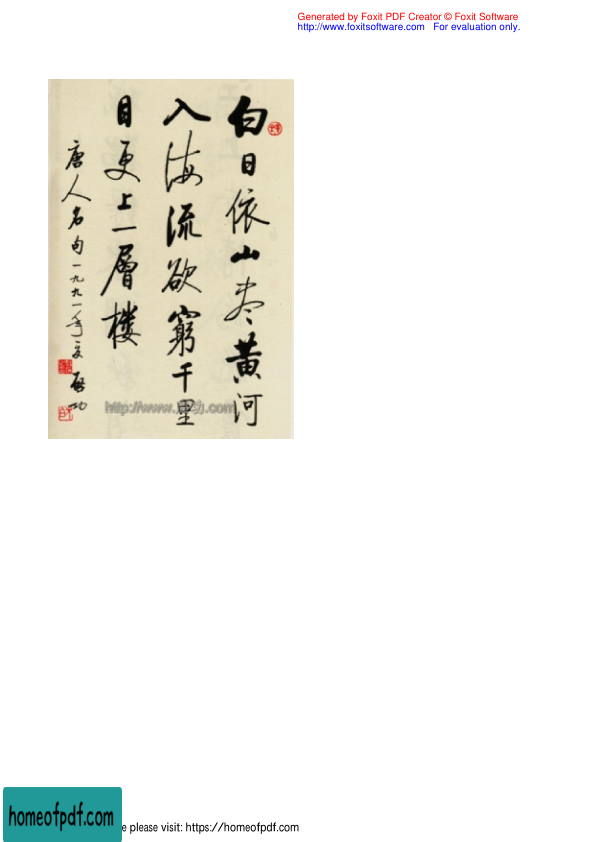 Generated by Foxit PDF Creator © Foxit Software
http://www.foxitsoftware.com For evaluation only.
白日依山尽黄河
入海流欲窮千里
目更上一層楼
唐人名句一九九一年夏 啓功
http://www. .com
homeofpdf.com
e please visit: https://homeofpdf.com